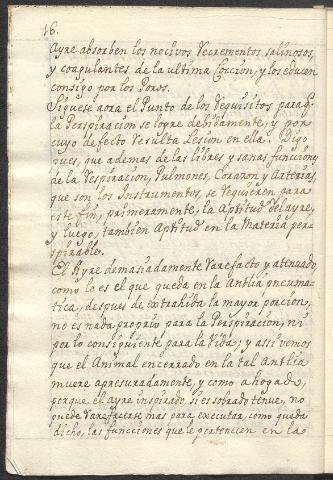 16.
Ayre absorben los nocivos Recrementos salinosos,
y coagulantes de la ultima Coccion, y los educen
consigo por los Poros.
Siguese aora el Punto de los Requisitos para q.
la Perspiracion se logre debidamente, y por
cuyo defecto Resulta Lesion en ella. Digo
pues, que ademas de las libres y sanas funciones
de la Respiracion, Pulmones, Corazon y Arterias,
que son los Instrumentos se Requieren para
este fin, primeramente, la Aptitud del ayre,
y luego, tambien Aptitud en la Materia per-
spirable.
El Ayre demasiadamente Rarefacto y atenuado,
como lo es el que queda en la Antlia pneuma-
tica, despues de extrahida la mayor porcion,
no es nada proprio para la Perspiracion, ni
por lo consiguiente para la Vida; y assi vemos
que el Animal encerrado en la tal Antlia
muere apresuradamente, y como ahogado,
porque el ayre inspirado, si es sobrado tenue, no
puede Rarefacerse mas para executar, como queda
dicho, las funciones que le pertenecen en la